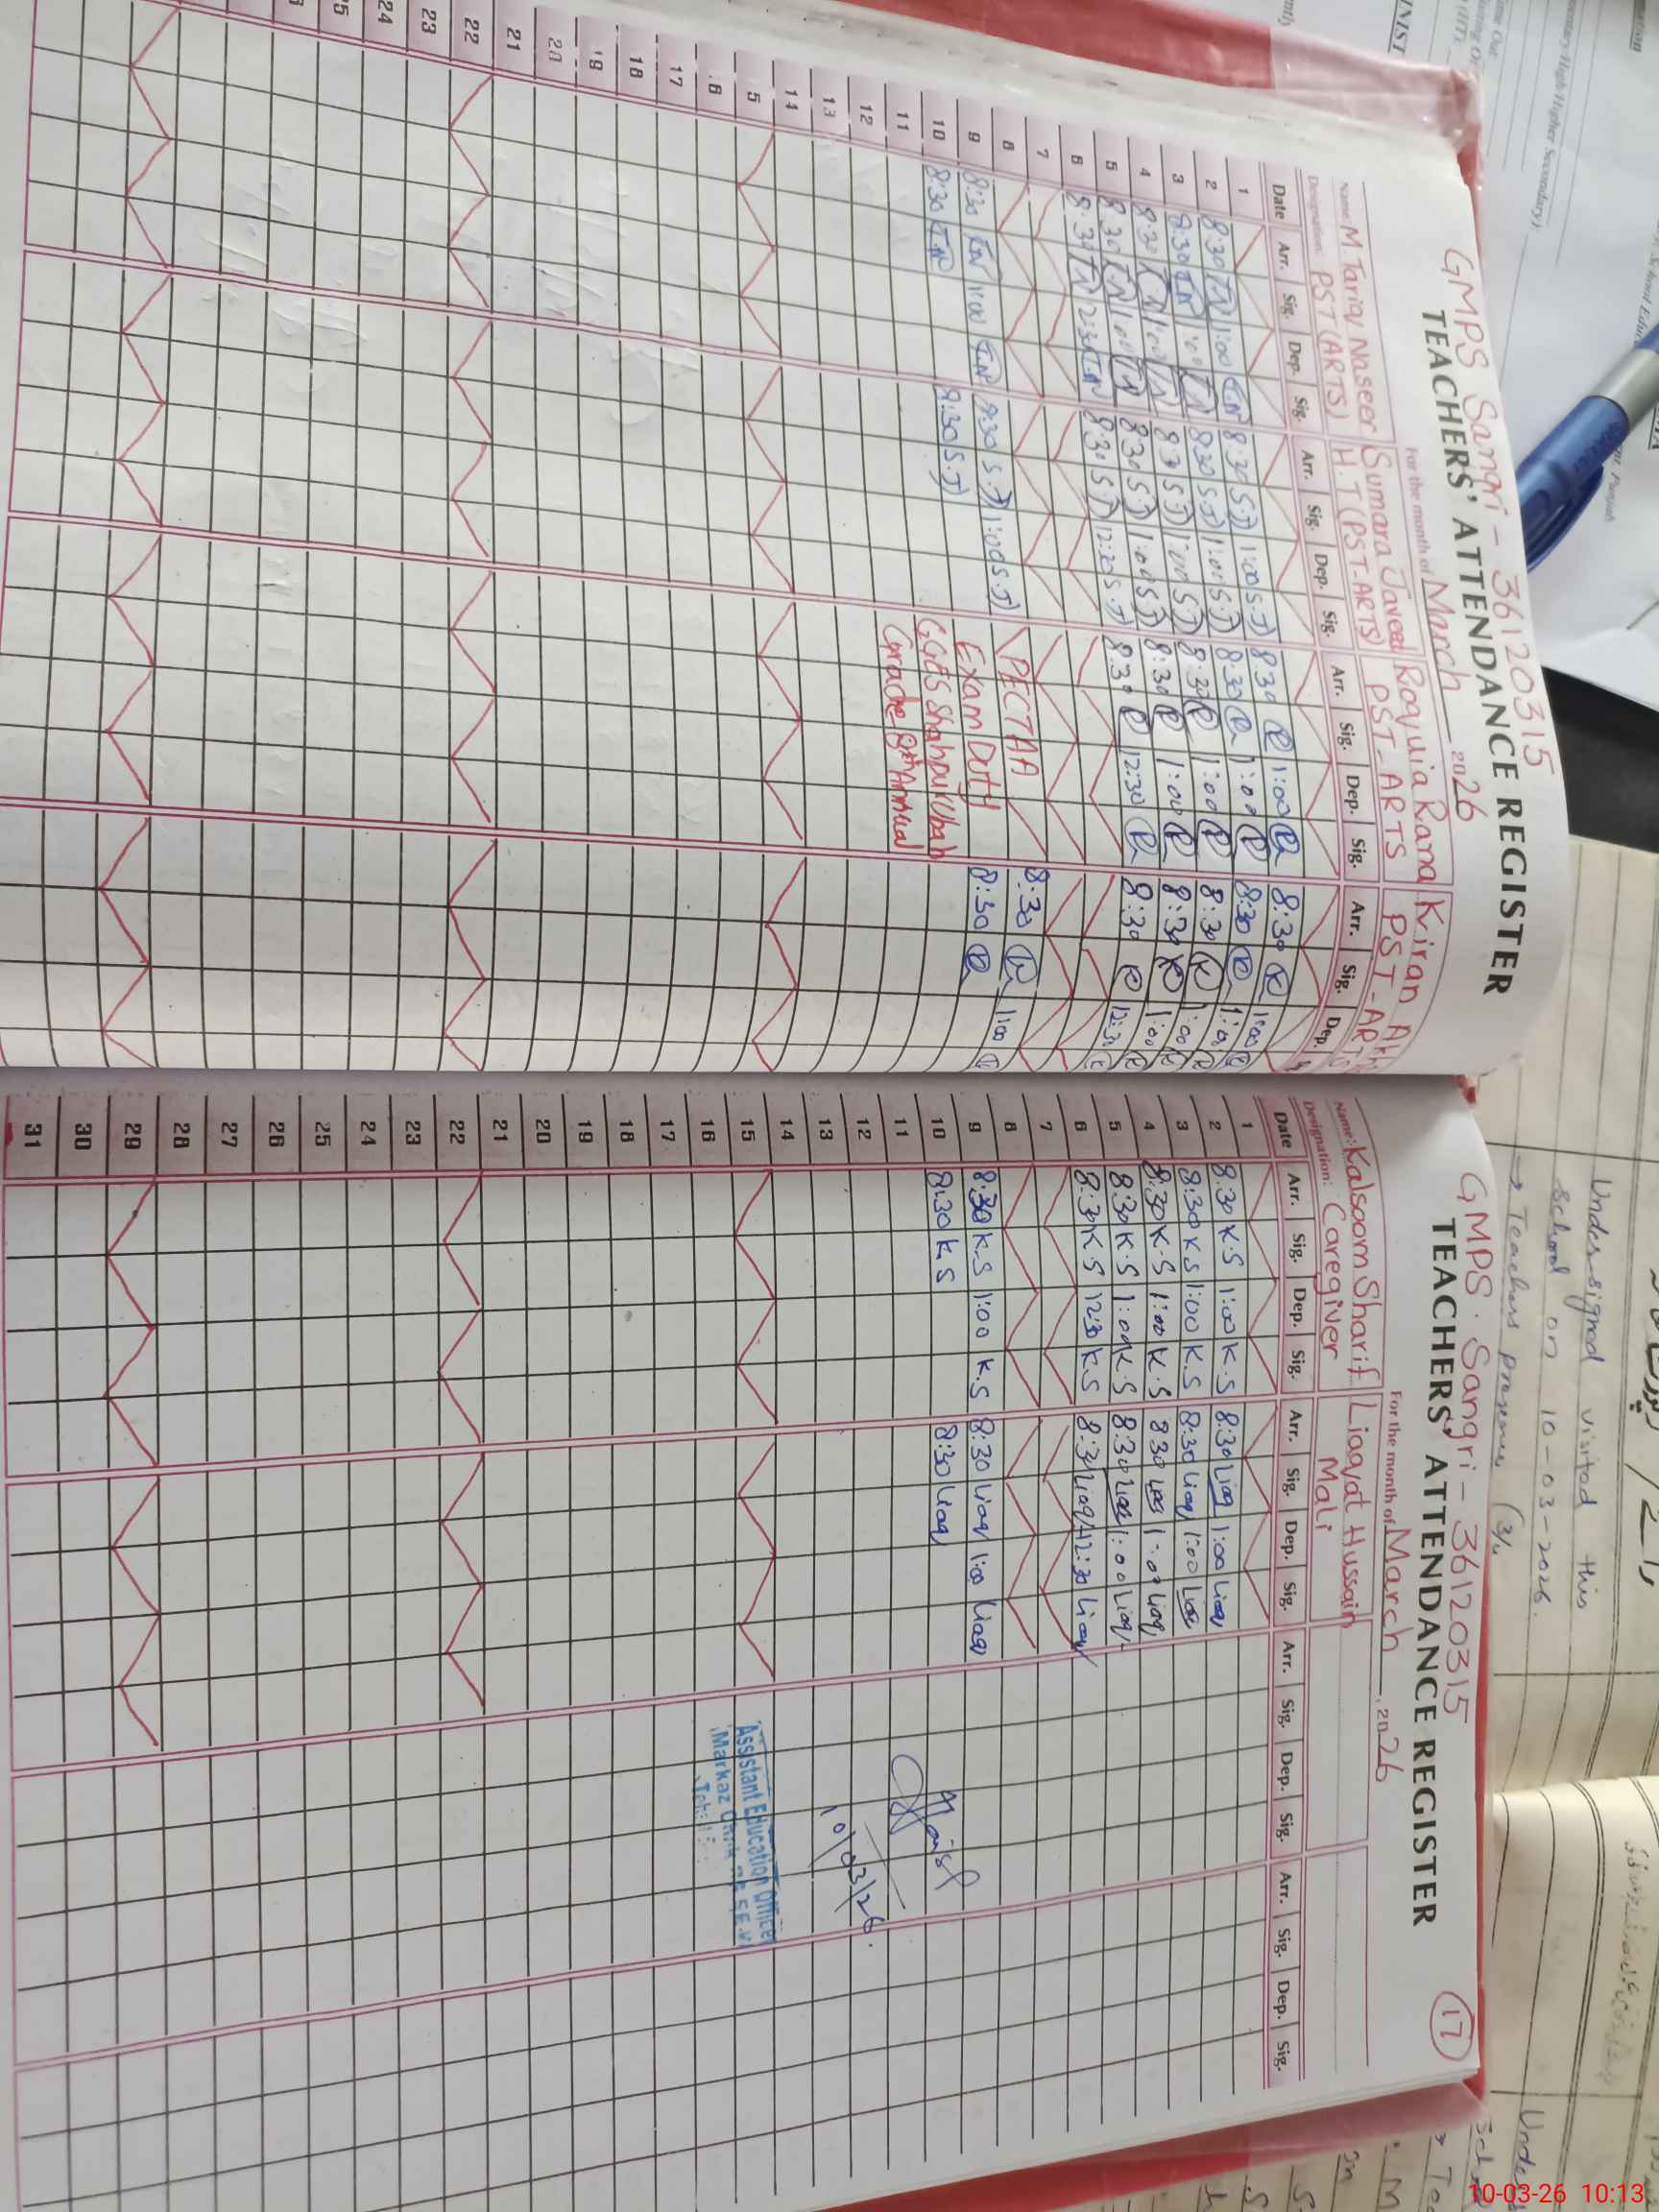 GMPS Sangri - 36120315
TEACHERS' ATTENDANCE REGISTER
For the month of March 2026
Name: M Tariq Naseer Sumara Javeed Roquia Rana Kiran
Designation: PST (ARTS) H.T (PST-ARTS) PST-ARTS PST-ARTS
Date Arr. Sig. Dep. Sig. Arr. Sig. Dep. Sig. Arr. Sig. Dep. Sig. Arr. Sig. Dep.
1
2 8:30 TN 1:00 TN 8:30 S.J 1:00 S.J 8:30 R 1:00 R 8:30 K 1:00 K
3 8:30 TN 1:00 TN 8:30 S.J 1:00 S.J 8:30 R 1:00 R 8:30 K 1:00 K
4 8:30 TN 1:00 TN 8:30 S.J 1:00 S.J 8:30 R 1:00 R 8:30 K 1:00 K
5 8:30 TN 1:00 TN 8:30 S.J 1:00 S.J 8:30 R 1:00 R 8:30 K 1:00 K
6 8:30 TN 12:30 TN 8:30 S.J 12:30 S.J 8:30 R 12:30 R 8:30 K 12:30 K
7
8
9 8:30 TN 1:00 TN 8:30 S.J 1:00 S.J PECTAA 8:30 K 1:00 K
10 8:30 TN 8:30 S.J Exam Duty 8:30 K
11 GGES Shahpur Ubah
12 Grade 8th Annual
13
14
15
16
17
18
19
20
21
22
23
24
25
GMPS. Sangri - 36120315
17
TEACHERS' ATTENDANCE REGISTER
For the month of March, 2026
Name: Kalsoom Sharif Liaqvat Hussain
Designation: Caregiver Mali
Date Arr. Sig. Dep. Sig. Arr. Sig. Dep. Sig. Arr. Sig. Dep. Sig. Arr. Sig. Dep. Sig.
1
2 8:30 K.S 1:00 K.S 8:30 Liaq 1:00 Liaq
3 8:30 K.S 1:00 K.S 8:30 Liaq 1:00 Liaq
4 8:30 K.S 1:00 K.S 8:30 Liaq 1:00 Liaq
5 8:30 K.S 1:00 K.S 8:30 Liaq 1:00 Liaq
6 8:30 K.S 12:30 K.S 8:30 Liaq 12:30 Liaq
7
8
9 8:30 K.S 1:00 K.S 8:30 Liaq 1:00 Liaq
10 8:30 K.S 8:30 Liaq
11
12
13
14
15
16
17
18
19
20
21
22
23
24
25
26
27
28
29
30
31
10/03/26.
Assistant Education Officer
Markaz
Under signed visited this
school on 10-03-2026.
→ Teachers present (3/4
10-03-26 10:13